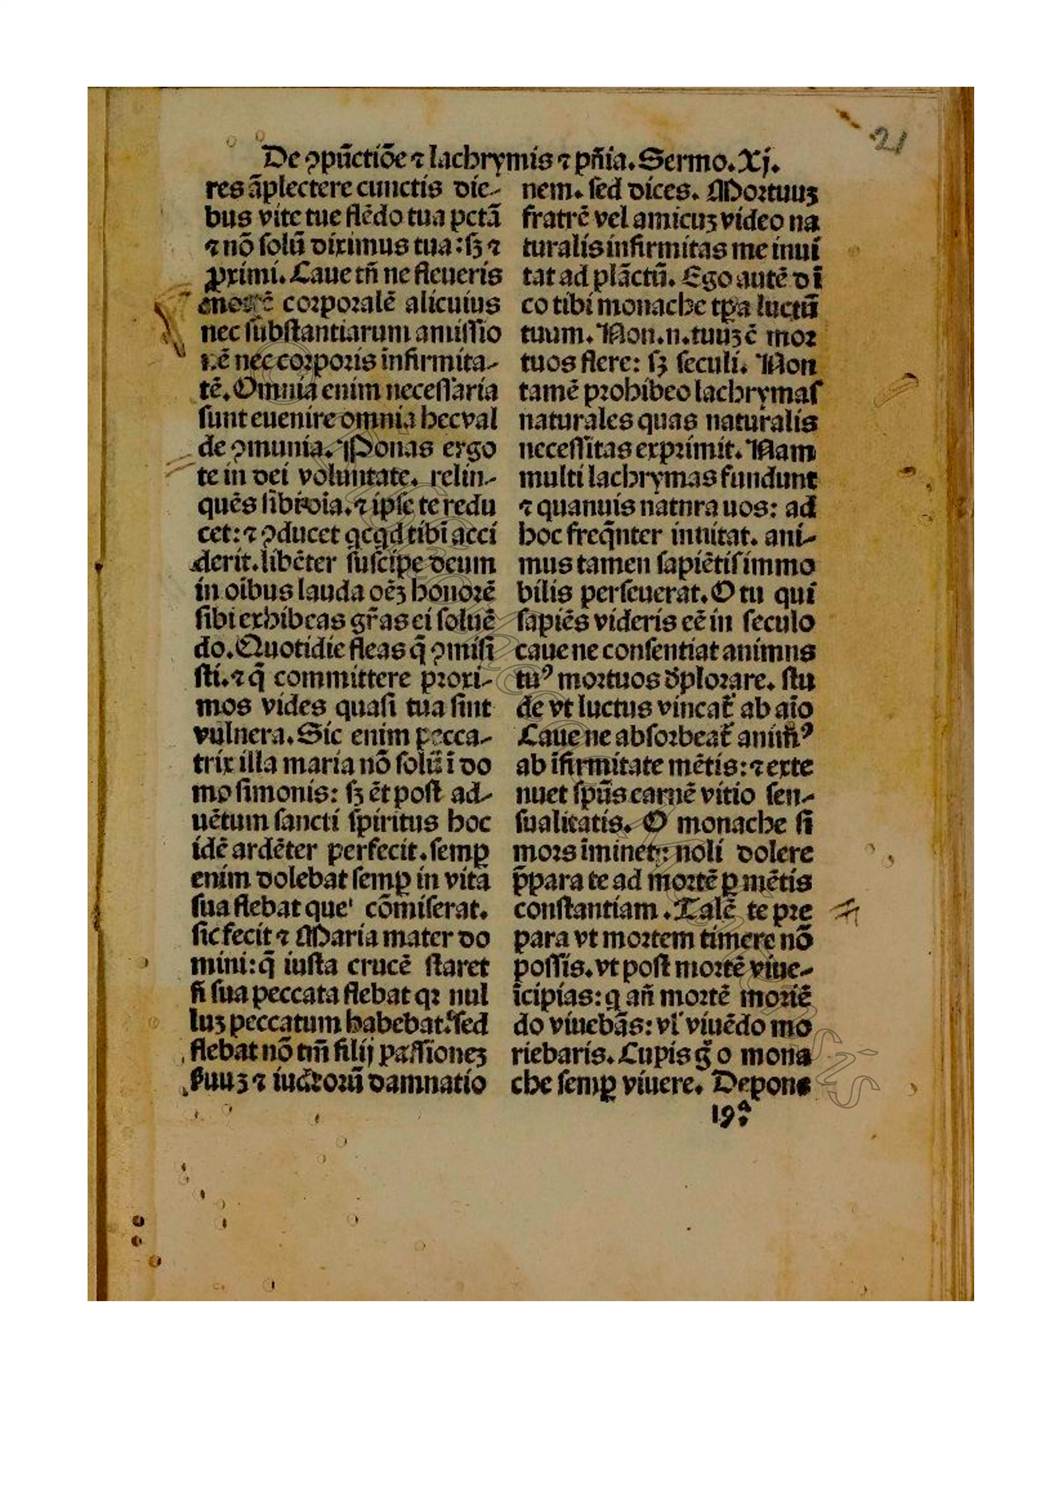 21
De ꝯpūctiōe ⁊ lachrymis ⁊ pn̄ia. Sermo. Xj.
res āplectere cunctis die-
bus vite tue flēdo tua pctā
⁊ nō solū diximus tua: sꝫ ⁊
ꝓximi. Caue tn̄ ne fleueris
corporalē alicuius
nec substantiarum amissio
nē nec corporis īnfirmita-
tē. Omnia enim necessaria
sunt euenire omnia hec val
de ꝯmunia. Ponas ergo
te in dei voluntate. relin-
quēs sibi oīa. ⁊ ipse te redu
cet: ⁊ ꝯducet qcqd tibi acci
derit. libēter suscipe deum
in oībus lauda oēꝫ honorē
sibi exhibeas gr̄as ei soluē
do. Quotidie fleas q̄ ꝯmisi
sti. ⁊ q̄ committere proxi-
mos vides quasi tua sint
vulnera. Sic enim pecca-
trix illa maria nō solū ī do
mo simonis: sꝫ ēt post ad-
uētum sancti spiritus hoc
idē ardēter perfecit. semꝑ
enim dolebat semꝑ in vita
sua flebat que' cōmiserat.
sic fecit ⁊ Maria mater do
mini: q̄ iusta crucē staret
ſi sua peccata flebat qꝛ nul
luꝫ peccatum habebat: sed
flebat nō tm̄ filij passioneꝫ
suuꝫ ⁊ iudeorū damnatio
nem. sed dices. Mortuuꝫ
fratrē vel amicuꝫ video na
turalis infirmitas me inui
tat ad plāctū. Ego autē dī
co tibi monache tꝑa luctū
tuum. Non. n. tuuꝫ ē mor
tuos flere: sꝫ seculi. Non
tamē prohibeo lachrymas
naturales quas naturalis
necessitas exprimit. Nam
multi lachrymas fundunt
⁊ quanuis natnra uos: ad
hoc freq̄nter inuitat. ani-
mus tamen sapiētissimmo
bilis perseuerat. O tu qui
sapiēs videris eē in seculo
caue ne consentiat animus
tuꝰ mortuos d̄plorare. stu
de vt luctus vincat̄ ab aīo
Caue ne absorbeat̄ anim̄ꝰ
ab īfirmitate mētis: ⁊ exte
nuet spūs carnē vitio sen-
sualitatis. O monache si
mors īminet: noli dolere
p̄para te ad mortē ꝑ mētis
constantiam. Talē te pre
para vt mortem timere nō
possis. vt post mortē viue-
īcipias: q an̄ mortē moriē
do viuebās: vl' viuēdo mo
riebaris. Cupis g̊ o mona
che semꝑ viuere. Depone
19ꝰ